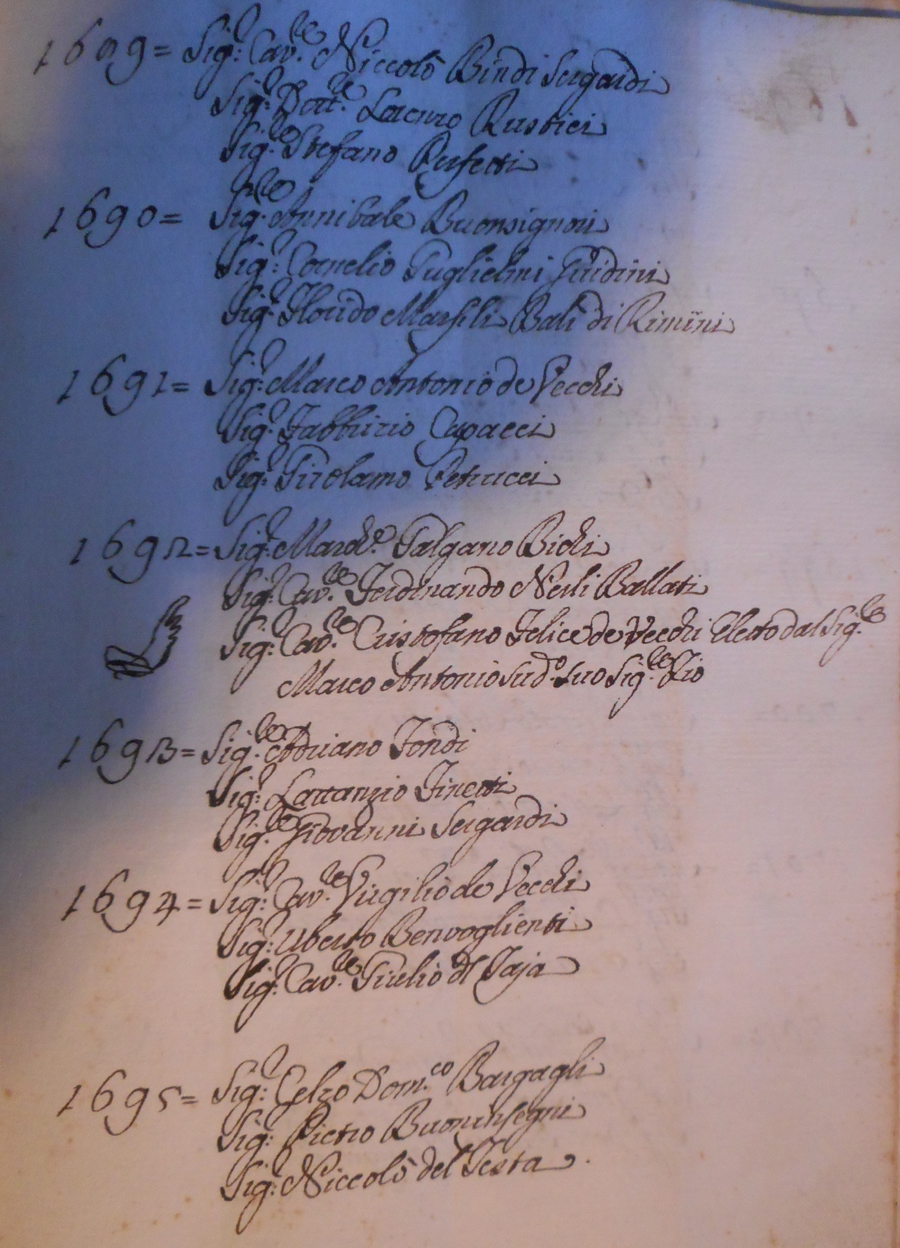 1689= Sig:re Cav:re Niccolò Bindi Sergardi
Sig:re Dott:re Lorenzo Rustici
Sig:re Stefano Rufetti
1690= Sig:re Annibale Buonsignori
Sig:re Cornelio Guglielmi Guidini
Sig:re Florido Marsili Balì di Rimini
1691= Sig:re Marco Antonio de Vecchi
Sig:re Fabbrizio Capacci
Sig:re Girolamo Petrucci
1692= Sig:re March:e Galgano Bichi
Sig:re Cav:re Ferdinando Nerli Ballati
Sig:re Cav:re Cristofano Felice de Vecchi Eletto dal Sig:re
Marco Antonio sud:o suo Sig:re Zio
1693= Sig:re Adriano Fondi
Sig:re Lattanzio Finetti
Sig:re Giovanni Sergardi
1694= Sig:re Cav:re Virgilio de Vecchi
Sig:re Uberto Benvoglienti
Sig:re Cav:re Giulio del Taja
1695= Sig:re Celzo Dom:co Bargagli
Sig:re Pietro Buoninsegni
Sig:re Niccolò del Testa.